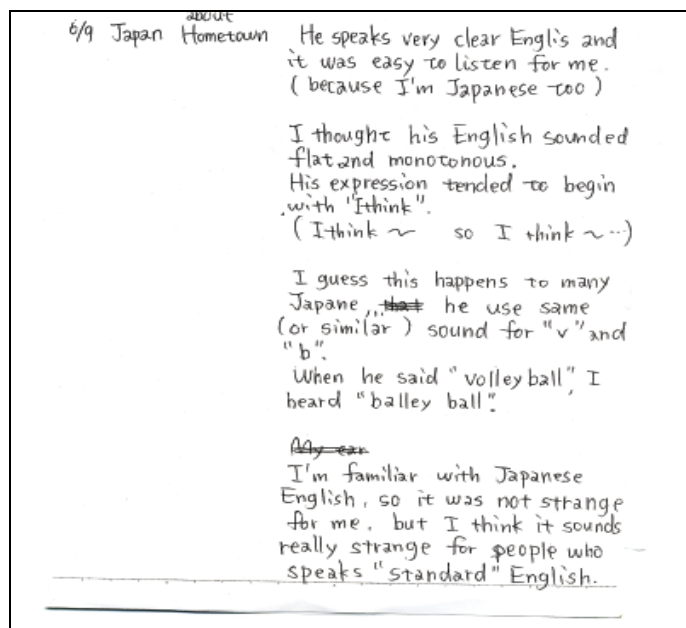 about
6/9 Japan Hometown He speaks very clear Englis and
it was easy to listen for me.
( because I'm Japanese too )
I thought his English sounded
flat and monotonous.
His expression tended to begin
with "I think".
( I think ~ so I think ~ ...)
I guess this happens to many
Japane,,, that he use same
(or similar ) sound for "v" and
"b".
When he said "volley ball", I
heard "balley ball".
My ear
I'm familiar with Japanese
English, so it was not strange
for me, but I think it sounds
really strange for people who
speaks "standard" English.